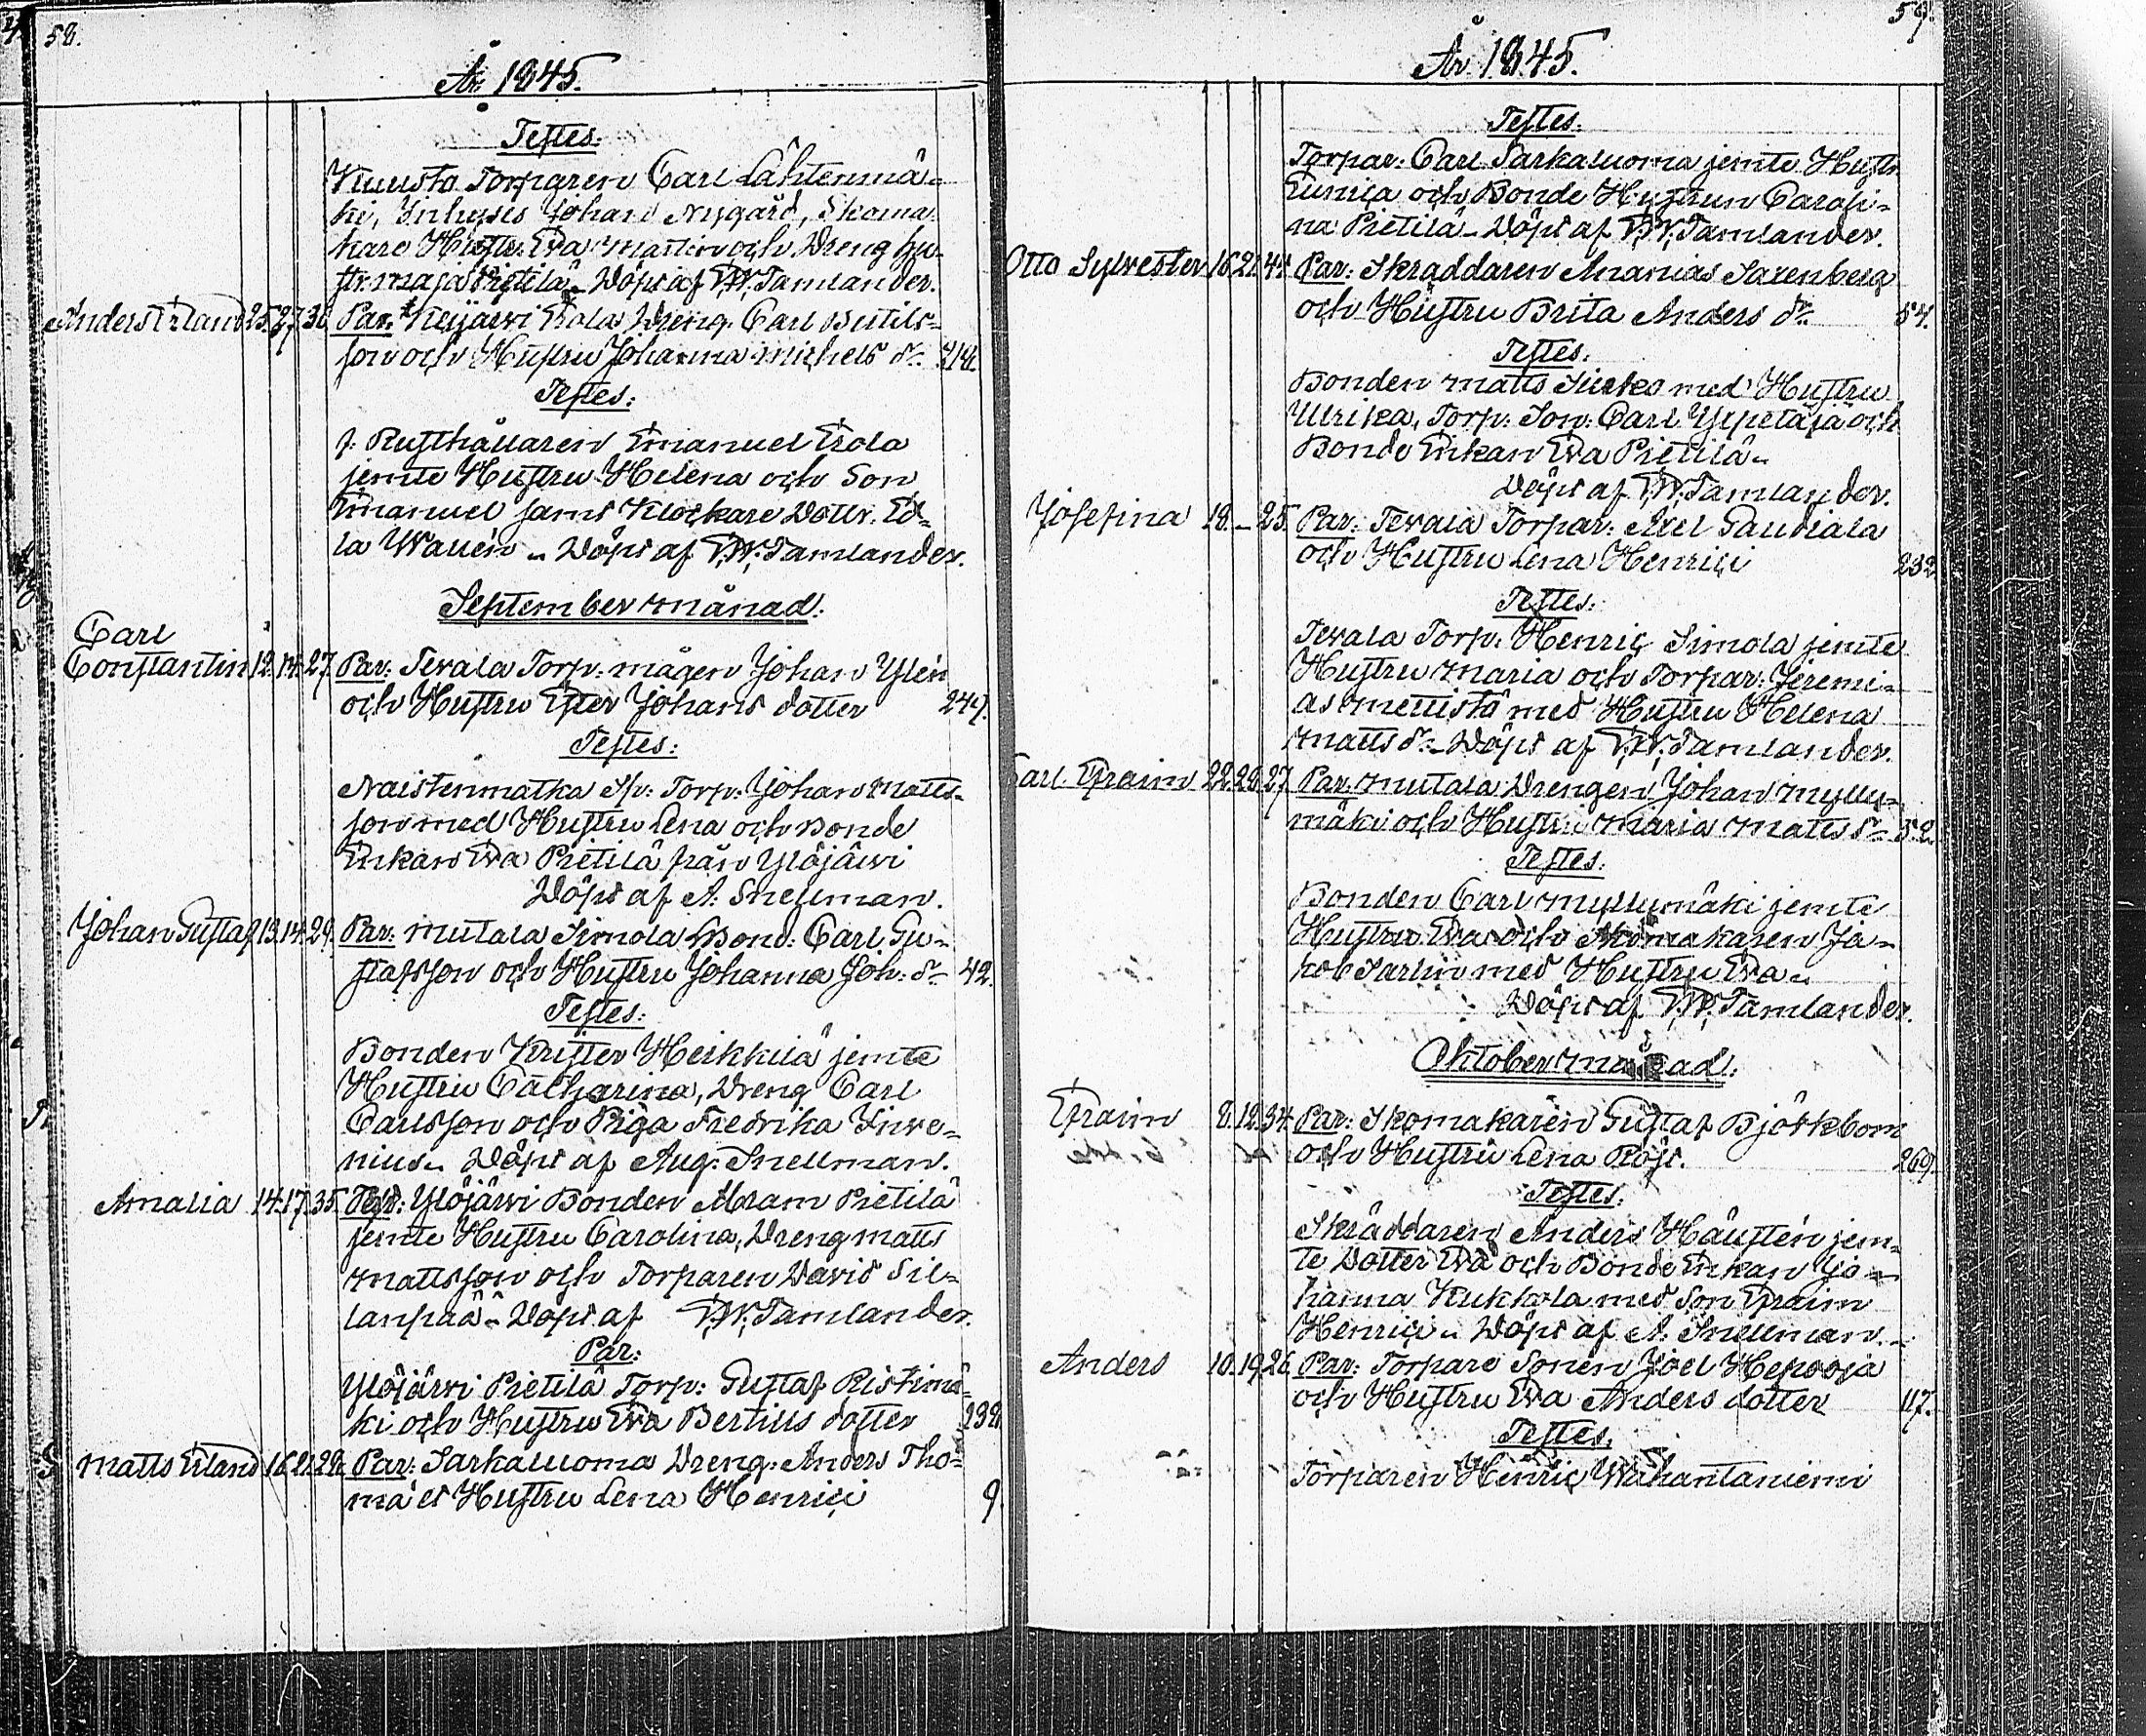 58.
År 1845.
Testes:
Kuusto Torparen Carl Lähtenmä-
ki, Inhyses Johan Nygård, Skoma-
kare Hustr. Eva Martin och Dreng hu-
str. Maja Pietilä - Döpt af F.W. Tamlander.
Anders Erland 25. 27. 30. Par. Keijärvi Erola Dreng. Carl Bertils-
son och Hustru Johanna Michels dr. 218.
Testes:
f. Rusthållaren Emanuel Erola
jemte Hustru Helena och Son
Emanuel samt Klockare Dottr. Ed-
la Wallén - Döpt af F.W. Tamlander.
September månad.
Carl
Constantin 12. 14. 27. Par: Tevala Torp: mågen Johan Ylén
och Hustru Ester Johans dotter 249.
Testes:
Naistenmatka Torp: Johan Matts-
son med Hustru Lena och Bonde
Enkan Eva Pietilä från Ylöjärvi
Döpt af A. Snellman.
Johan Gustaf 13. 14. 29. Par: Mutala Simola Bond: Carl Gu-
stafsson och Hustru Johanna Joh: dr. 42.
Testes:
Bonden Krister Heikkilä jemte
Hustru Catharina, Dreng Carl
Carlsson och Piga Fredrika Inve-
nius. Döpt af Aug. Snellman.
Amalia 14. 17. 35. Ylöjärvi Bonden Abram Pietilä
jemte Hustru Carolina, Dreng Matts
Mattsson och Torparen David Sil-
lanpää - Döpt af F.W. Tamlander.
Par:
Ylöjärvi Pietilä Torp: Gustaf Ristimä-
ki och Hustru Eva Bertills dotter 232.
Matts Erland 16. 21. 28. Par: Sarkaluoma Dreng. Anders Tho-
mæ et Hustru Lena Henrici 9.
59.
År 1845.
Testes:
Torpar: Carl Sarkaluoma jemte Hustr.
Eunica och Bonde Hustrun Caroli-
na Pietilä - Döpt af F.W. Tamlander.
Otto Sylvester 16. 21. 44. Par: Skraddaren Ananias Saxenberg
och Hustru Brita Anders dr. 54.
Testes:
Bonden Matts Siuko med Hustru
Ulrika, Torp: Son: Carl Ylipetäjä och
Bonde Enkan Eva Pietilä -
Döpt af F.W. Tamlander.
Josefina 18. - 25. Par: Tevala Torpar: Axel Gaudiala
och Hustru Lena Henrici 232
Testes:
Tevala Torp: Henric Simola jemte
Hustru Maria och Torpar: Jeremi-
as Mettistö med Hustru Helena
Matts dr. - Döpt af F.W. Tamlander.
Carl Efraim 22. 28. 27. Par: Mutala Drengen Johan Mylly-
mäki och Hustru Maria Matts dr. 52.
Testes:
Bonden Carl Myllymäki jemte
Hustru Eva och Skomakaren Ja-
kob Sarlin med Hustru Eva -
Döpt af F.W. Tamlander.
Oktober månad.
Efraim 8. 12. 34. Par: Skomakaren Gustaf Björkbom
och Hustru Lena Röst. 269.
Testes:
Skräddaren Anders Hausten jem-
te Dotter Eva och Bonde Enkan Jo-
hanna Kukkola med Son Efraim
Henrici. Döpt af A. Snellman. -
Anders 10. 19. 26. Par: Torpare Sonen Joel Hepooja
och Hustru Eva Anders dotter 117.
Testes.
Torparen Henric Wahantaniemi